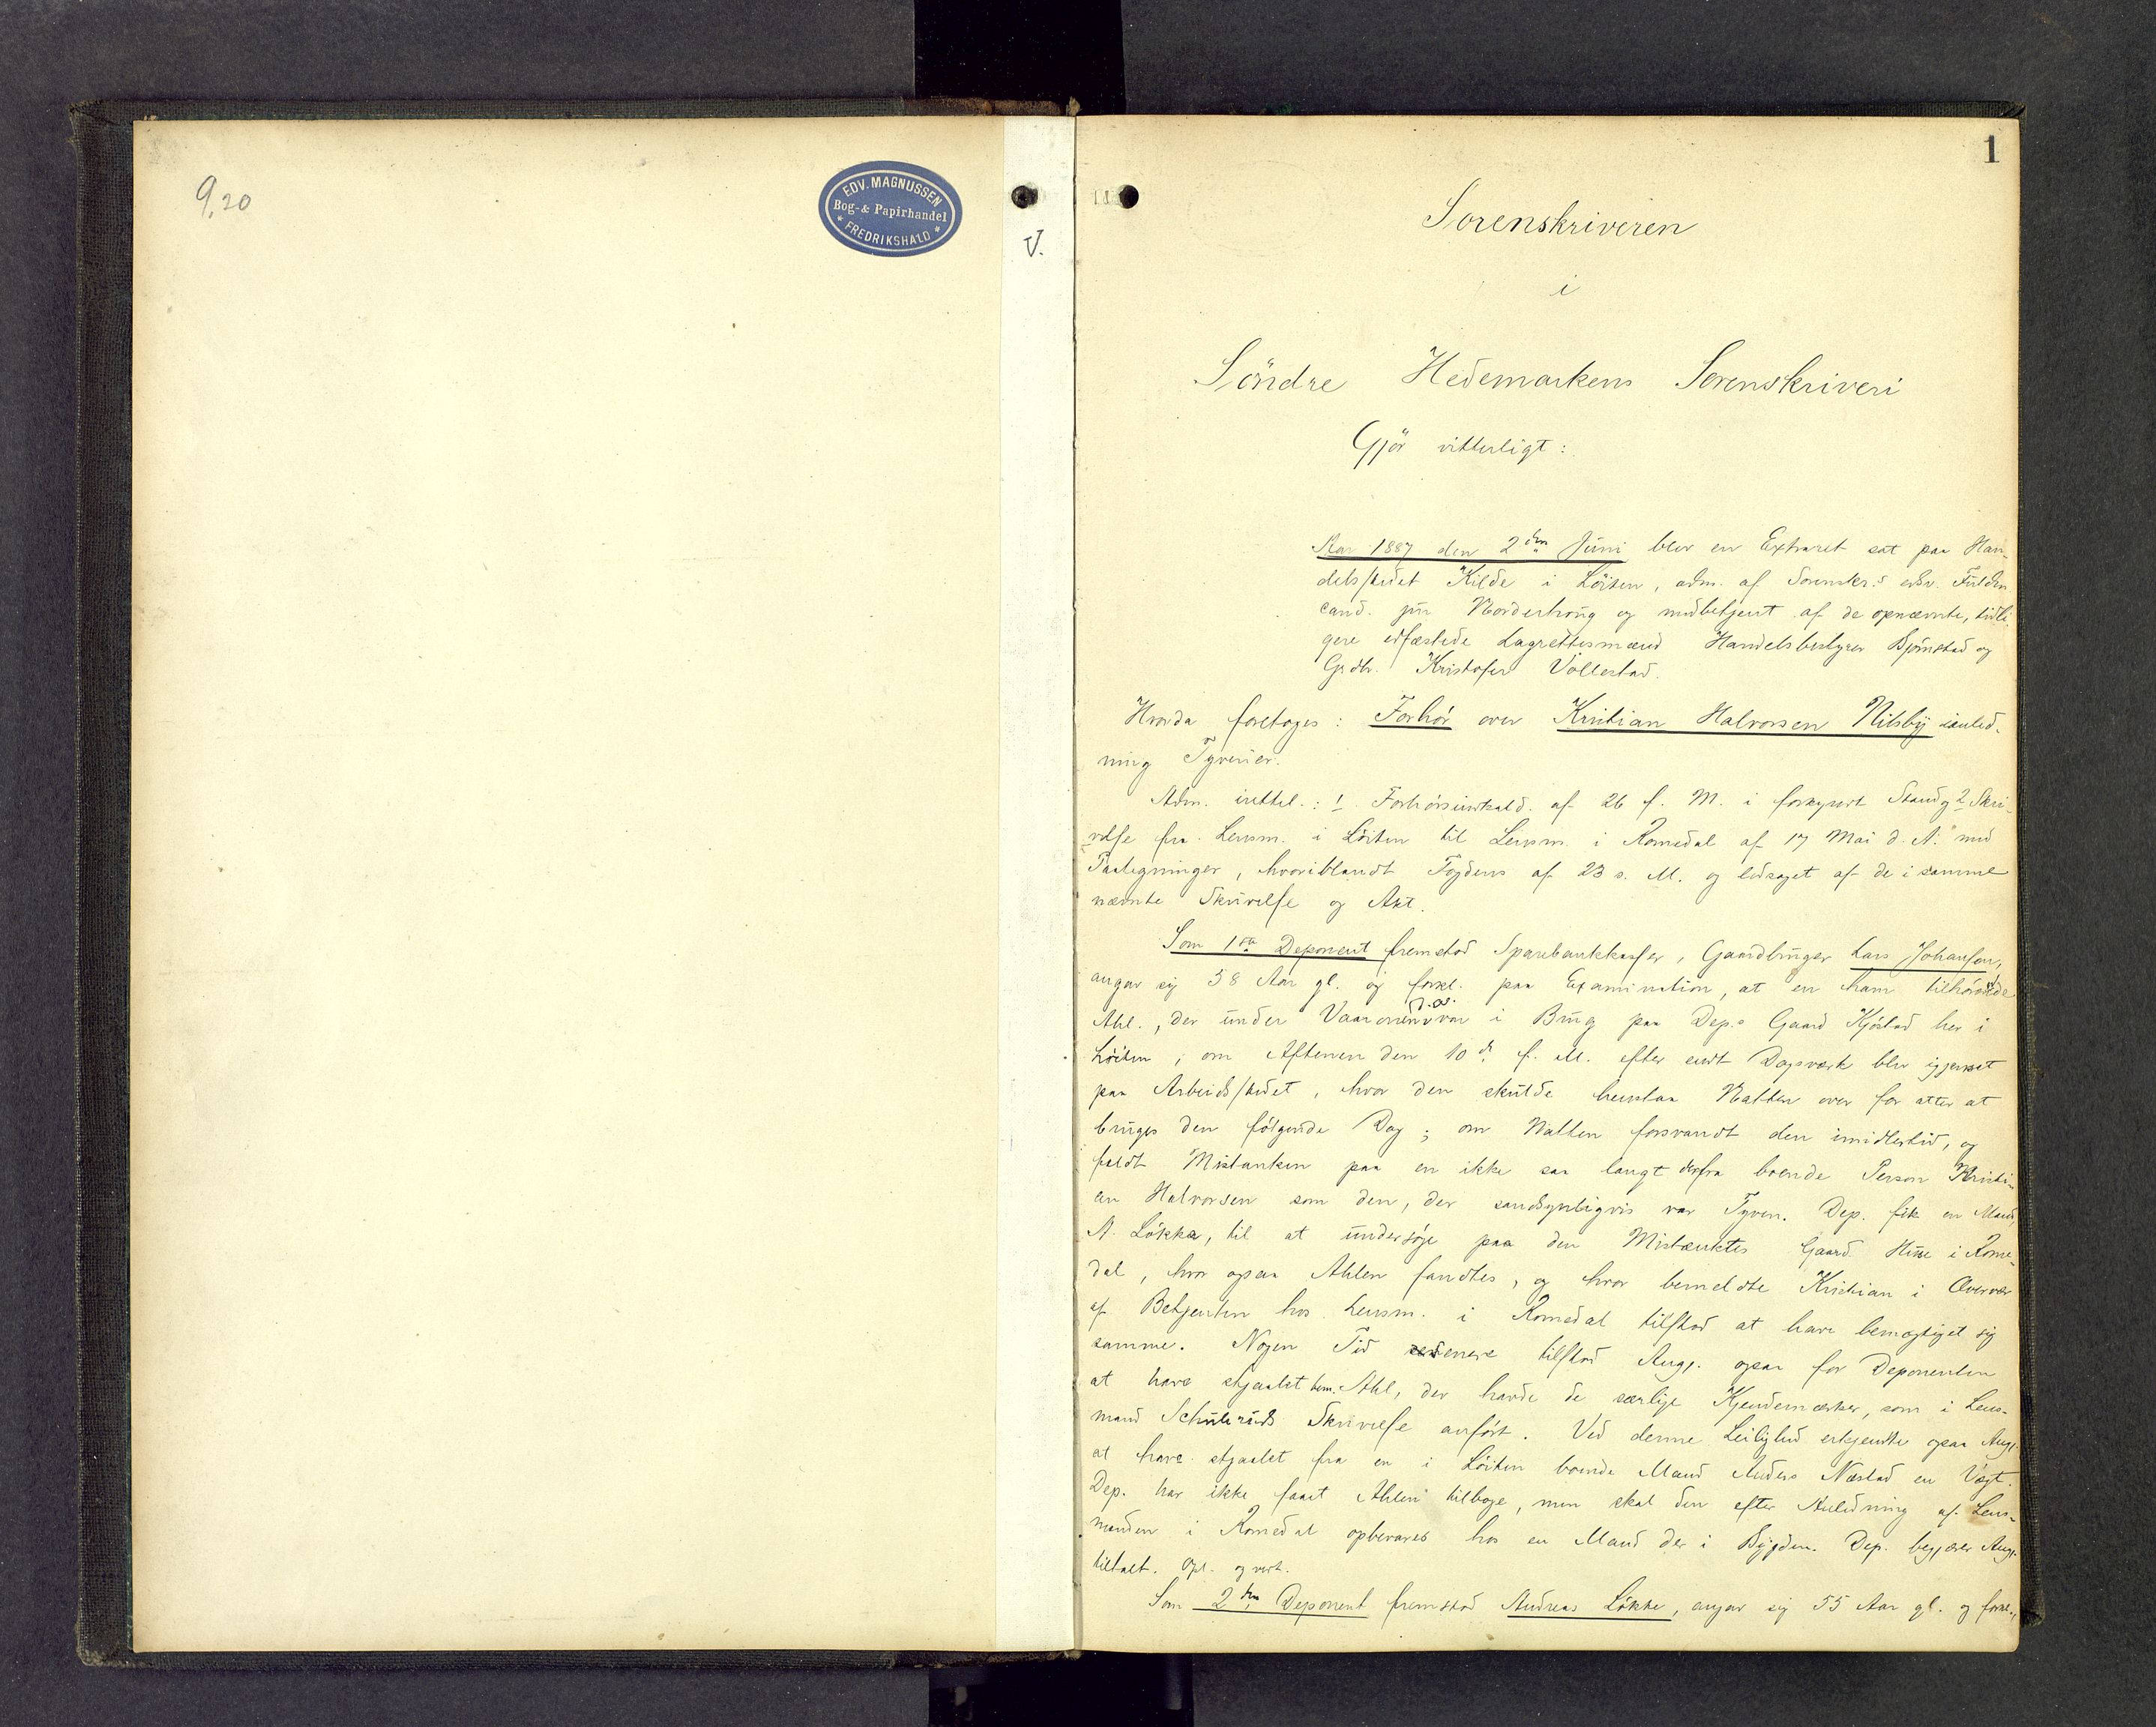 9.20
EDV. MAGNUSSEN
Bog- & Papirhandel
* FREDRIKSHALD *
V.
1
Sorenskriveren
i
Söndre Hedemarkens Sorenskriveri
Gjör vitterligt:
Aar 1887 den 2den Juni blev en Extraret sat paa Han-
delsstedet Kilde i Löiten, adm. af Sorenskr.s edsv. Fuldm
cand. jur Norderhoug og medbetjent af de opnævnte, tidli-
gere edfæstede Lagrettesmænd Handelsbestyrer Bjørnstad og
Grdbr. Kristofer Vollestad.
Hvorda foretoges: Forhör over Kristian Halvorsen Nilsby ianled-
ning Tyverier.
Adm. irettel.: 1. Forhörsindkald. af 26 f. M. i forkynt Stand og 2 Skri-
velse fra Lensm. i Löiten til Lensm. i Romedal af 17 Mai d. A. med
Paategninger, hvoriblandt Fogdens af 23 s. M. og ledsaget af de i samme
nævnte Skrivelse og Akt.
Som 1ste Deponent fremstod Sparebankkasser, Gaardbruger Lars Johansen,
angav sig 58 Aar gl. og forkl. paa Examination, at en ham tilhörende
Ahl., der under Vaaronnen d. A. var i Brug paa Dep.s Gaard Kjöstad her i
Löiten, om Aftenen den 10de f. M. efter endt Dagsværk blev igjensat
paa Arbeidsstedet, hvor den skulde henstaa Natten over for atter at
bruges den fölgende Dag; om Natten forsvandt den imidlertid, og
faldt Mistanken paa en ikke saa langt derfra boende Person Kristi-
an Halvorsen som den, der sandsynligvis var Tyven. Dep. fik en Mand,
A. Lökke, til at undersöge paa den Mistænktes Gaard Huse i Rome-
dal, hvor ogsaa Ahlen fandtes, og hvor bemeldte Kristian i Overvær
af Betjenten hos Lensm. i Romedal tilstod at have bemægtiget sig
samme. Nogen Tid senere tilstod Ang. ogsaa for Deponenten
at have stjaalet bem. Ahl, der havde de særlige Kjendemærker, som i Lens-
mand Schulruds Skrivelse anfört. Ved denne Leilighed erkjendte ogsaa Ang.
at have stjaalet fra en i Löiten boende Mand Anders Næstad en Vægt.
Dep. har ikke faaet Ahlen tilbage, men skal den efter Anledning af Lens-
manden i Romedal opbevares hos en Mand der i Bygden. Dep. begjærer Ang.
tiltalt. Opl. og vedt.
Som 2den Deponent fremstod Andreas Lökke, angav sig 55 Aar gl. og forkl.,